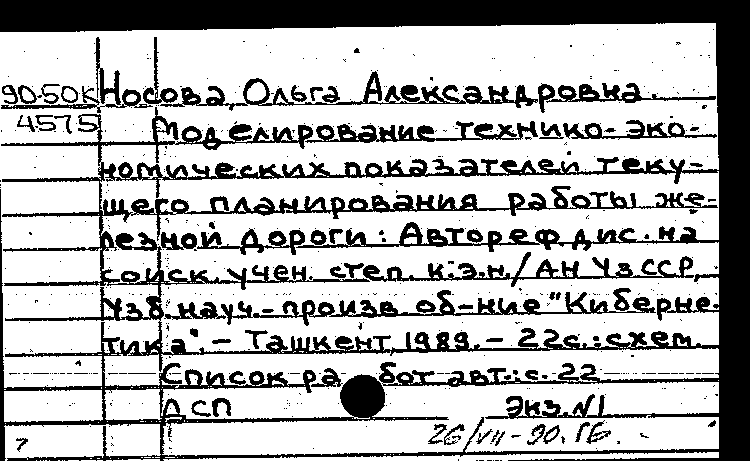 90-50К Носова, Ольга Александровна.
4575 Моделирование технико-эко-
номических показателей теку-
щего планирования работы же-
лезной дороги: Автореф. дис. на
соиск. учен. степ. к.э.н. / АН УзССР,
Узб. науч.-произв. об-ние "Киберне-
тика". - Ташкент, 1989. - 22с.: схем.
Список работ авт.: с. 22
ДСП Экз. N1
26/VII-90. ГБ.
7